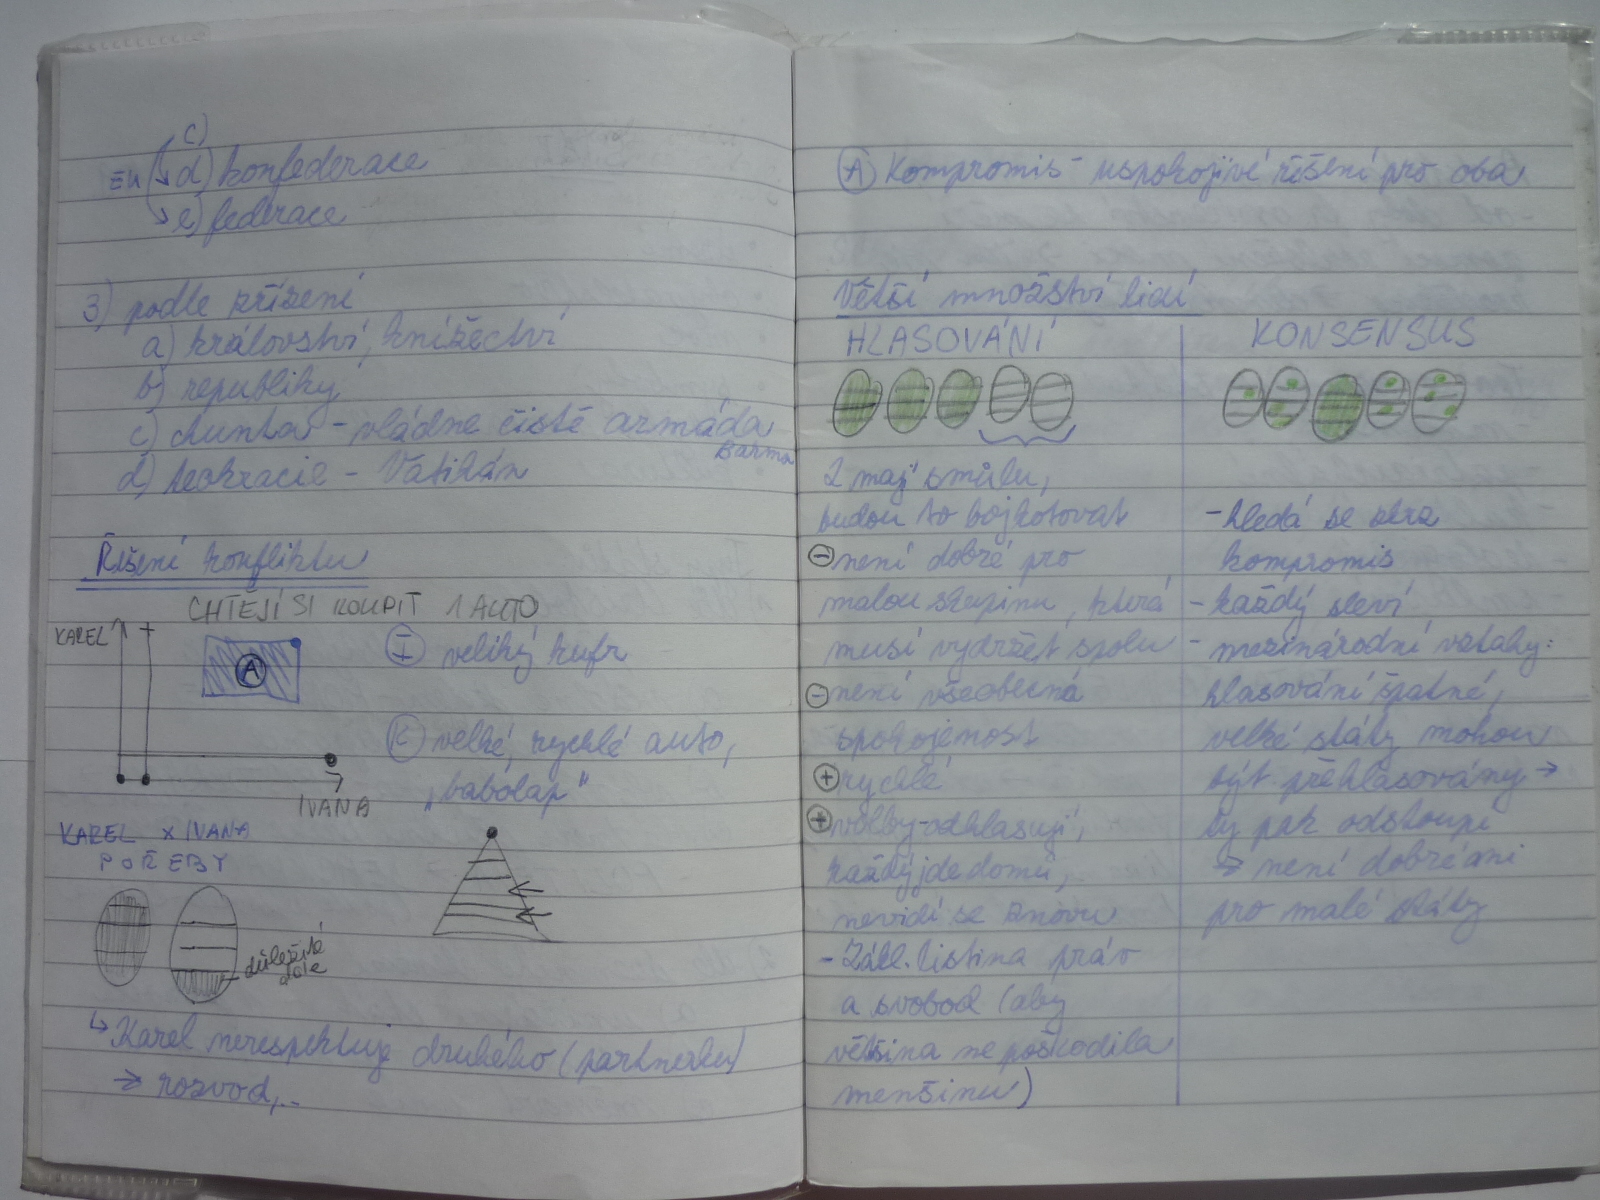 c)
EU d) konfederace
e) federace
3) podle zřízení
a) království, knížectví
b) republiky
c) chunta - vládne čistě armáda
Barma
d) teokracie - Vatikán
Řešení konfliktu
CHTĚJÍ SI KOUPIT 1 AUTO
KAREL
A
I veliký kufr
K velké, rychlé auto,
„babolap"
IVANA
KAREL x IVANA
POŘEBY
důležité
dole
↳ Karel nerespektuje druhého (partnerku)
→ rozvod,..
A Kompromis - uspokojivé řešení pro oba
Větší množství lidí
HLASOVÁNÍ
2 mají smůlu,
budou to bojkotovat
- není dobré pro
malou skupinu, která
musí vydržet spolu
- není všeobecná
spokojenost
+ rychlé
+ volby - odhlasují,
každý jde domů,
nevidí se znovu
- Zákl. listina práv
a svobod (aby
většina nepoškodila
menšinu)
KONSENSUS
- hledá se skrz
kompromis
- každý sleví
- mezinárodní vztahy:
hlasování špatné,
velké státy mohou
být přehlasovány →
ty pak odstoupí
→ není dobré ani
pro malé státy